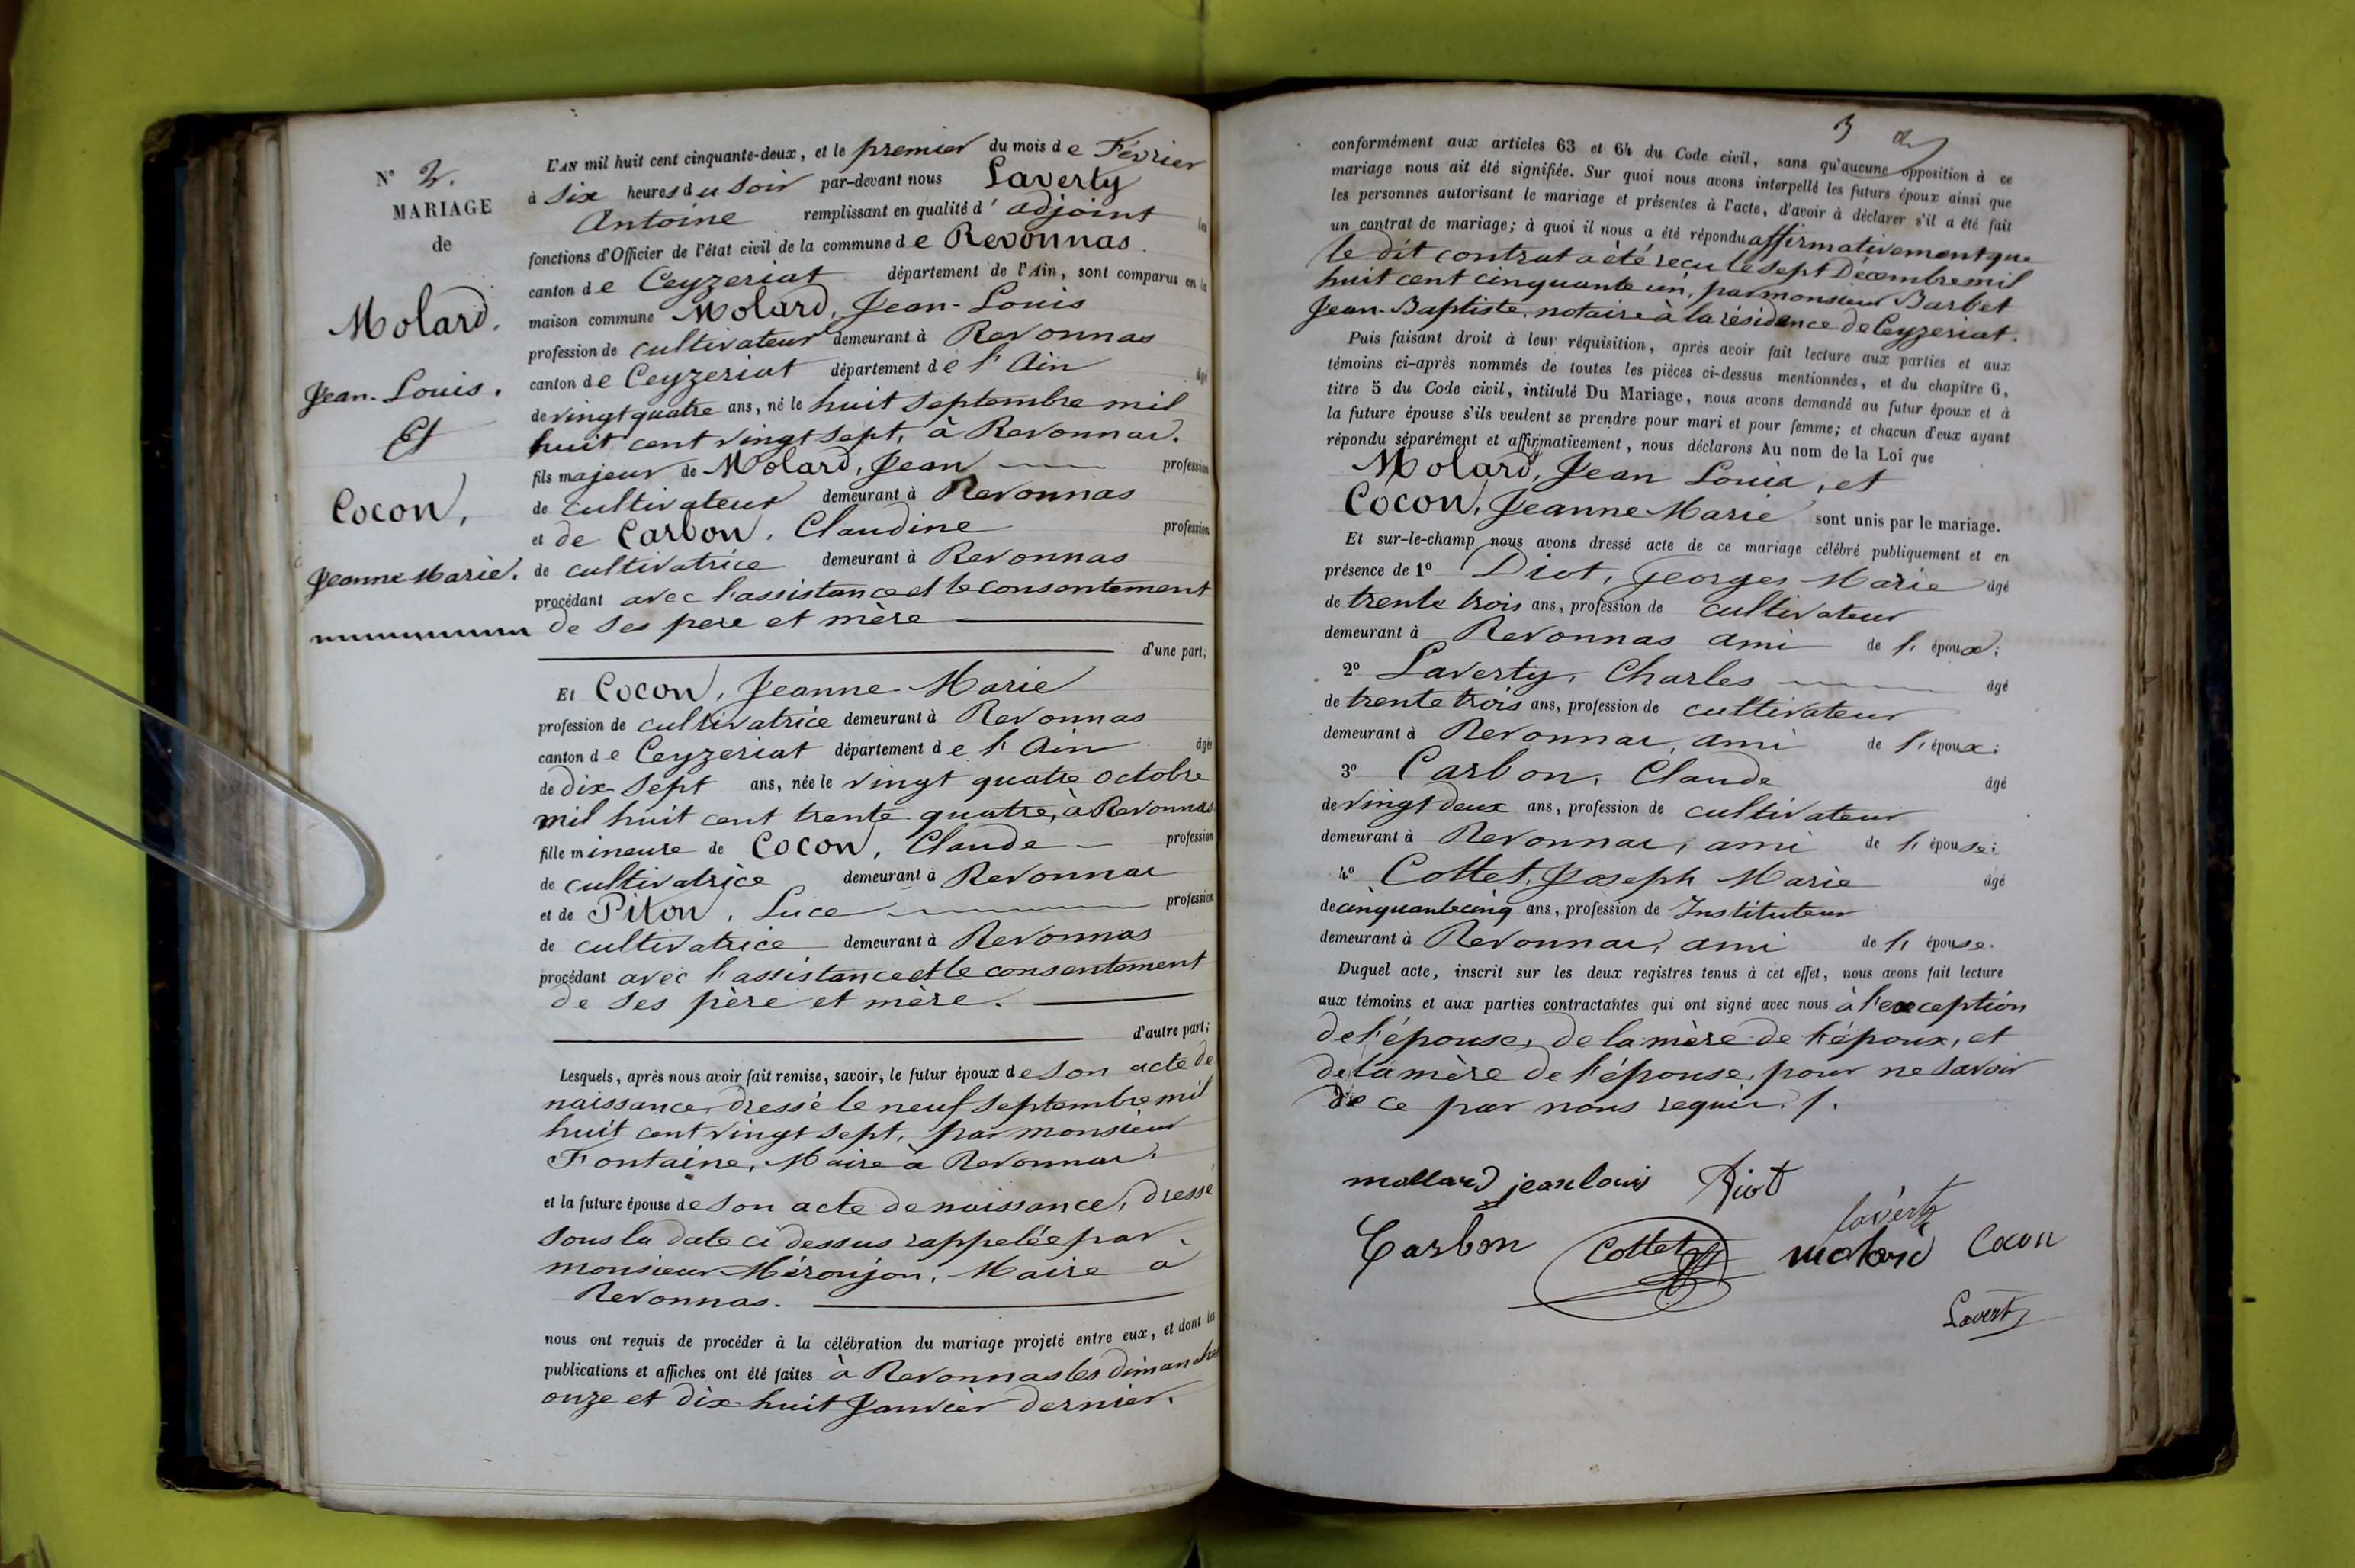 N° 2.
MARIAGE
de
Molard.
Jean-Louis.
Et
Cocon,
Jeanne-Marie.
L'AN mil huit cent cinquante-deux, et le premier du mois de Février
à Six heures du Soir par-devant nous Laverty
Antoine remplissant en qualité d'adjoint les
fonctions d'Officier de l'état civil de la commune de Revonnas.
canton de Ceyzeriat département de l'Ain, sont comparus en la
maison commune Molard, Jean-Louis
profession de cultivateur demeurant à Revonnas
canton de Ceyzeriat département de l'Ain âgé
de vingt quatre ans, né le huit Septembre mil
huit cent vingt Sept, à Revonnas.
fils majeur de Molard, Jean profession
de cultivateur demeurant à Revonnas
et de Carbon, Claudine profession
de cultivatrice demeurant à Revonnas
procédant avec l'assistance et le consentement
de Ses pere et mère
d'une part;
Et Cocon, Jeanne-Marie
profession de cultivatrice demeurant à Revonnas
canton de Ceyzeriat département de l'Ain âgée
de dix-Sept ans, née le vingt quatre octobre
mil huit cent trente quatre, à Revonnas
fille mineure de Cocon, Claude profession
de cultivatrice demeurant à Revonnas
et de Piton, Luce profession
de cultivatrice demeurant à Revonnas
procédant avec l'assistance et le consentement
de Ses père et mère.
d'autre part;
Lesquels, après nous avoir fait remise, savoir, le futur époux de Son acte de
naissance, dressé le neuf Septembre mil
huit cent vingt Sept, par monsieur
Fontaine, Maire à Revonnas.
et la future épouse de Son acte de naissance, dressé
Sous la date ci dessus rappelée par
monsieur Méronjon, Maire à
Revonnas.
nous ont requis de procéder à la célébration du mariage projeté entre eux, et dont les
publications et affiches ont été faites à Revonnas les dimanches
onze et dix-huit Janvier dernier.
3
conformément aux articles 63 et 64 du Code civil, sans qu'aucune opposition à ce
mariage nous ait été signifiée. Sur quoi nous avons interpellé les futurs époux ainsi que
les personnes autorisant le mariage et présentes à l'acte, d'avoir à déclarer s'il a été fait
un contrat de mariage; à quoi il nous a été répondu affirmativement que
le dit contrat a été reçu le Sept Décembre mil
huit cent cinquante un, par monsieur Barbet
Jean-Baptiste, notaire à la résidence de Ceyzeriat.
Puis faisant droit à leur réquisition, après avoir fait lecture aux parties et aux
témoins ci-après nommés de toutes les pièces ci-dessus mentionnées, et du chapitre 6,
titre 5 du Code civil, intitulé Du Mariage, nous avons demandé au futur époux et à
la future épouse s'ils veulent se prendre pour mari et pour femme; et chacun d'eux ayant
répondu séparément et affirmativement, nous déclarons Au nom de la Loi que
Molard, Jean Louis, et
Cocon, Jeanne Marie sont unis par le mariage.
Et sur-le-champ nous avons dressé acte de ce mariage célébré publiquement et en
présence de 1° Diot, Georges Marie âgé
de trente trois ans, profession de cultivateur
demeurant à Revonnas ami de l'époux;
2° Laverty, Charles âgé
de trente trois ans, profession de cultivateur
demeurant à Revonnas, ami de l'époux;
3° Carbon, Claude âgé
de vingt deux ans, profession de cultivateur
demeurant à Revonnas, ami de l'épouse;
4° Cottet, Joseph Marie âgé
de cinquante cinq ans, profession de Instituteur
demeurant à Revonnas, ami de l'épouse.
Duquel acte, inscrit sur les deux registres tenus à cet effet, nous avons fait lecture
aux témoins et aux parties contractantes qui ont signé avec nous à l'exception
de l'épouse, de la mère de l'époux, et
de la mère de l'épouse, pour ne Savoir
de ce par nous requis.
mollard jean louis Diot
laverty
Carbon Cottet molard Cocon
Laverty